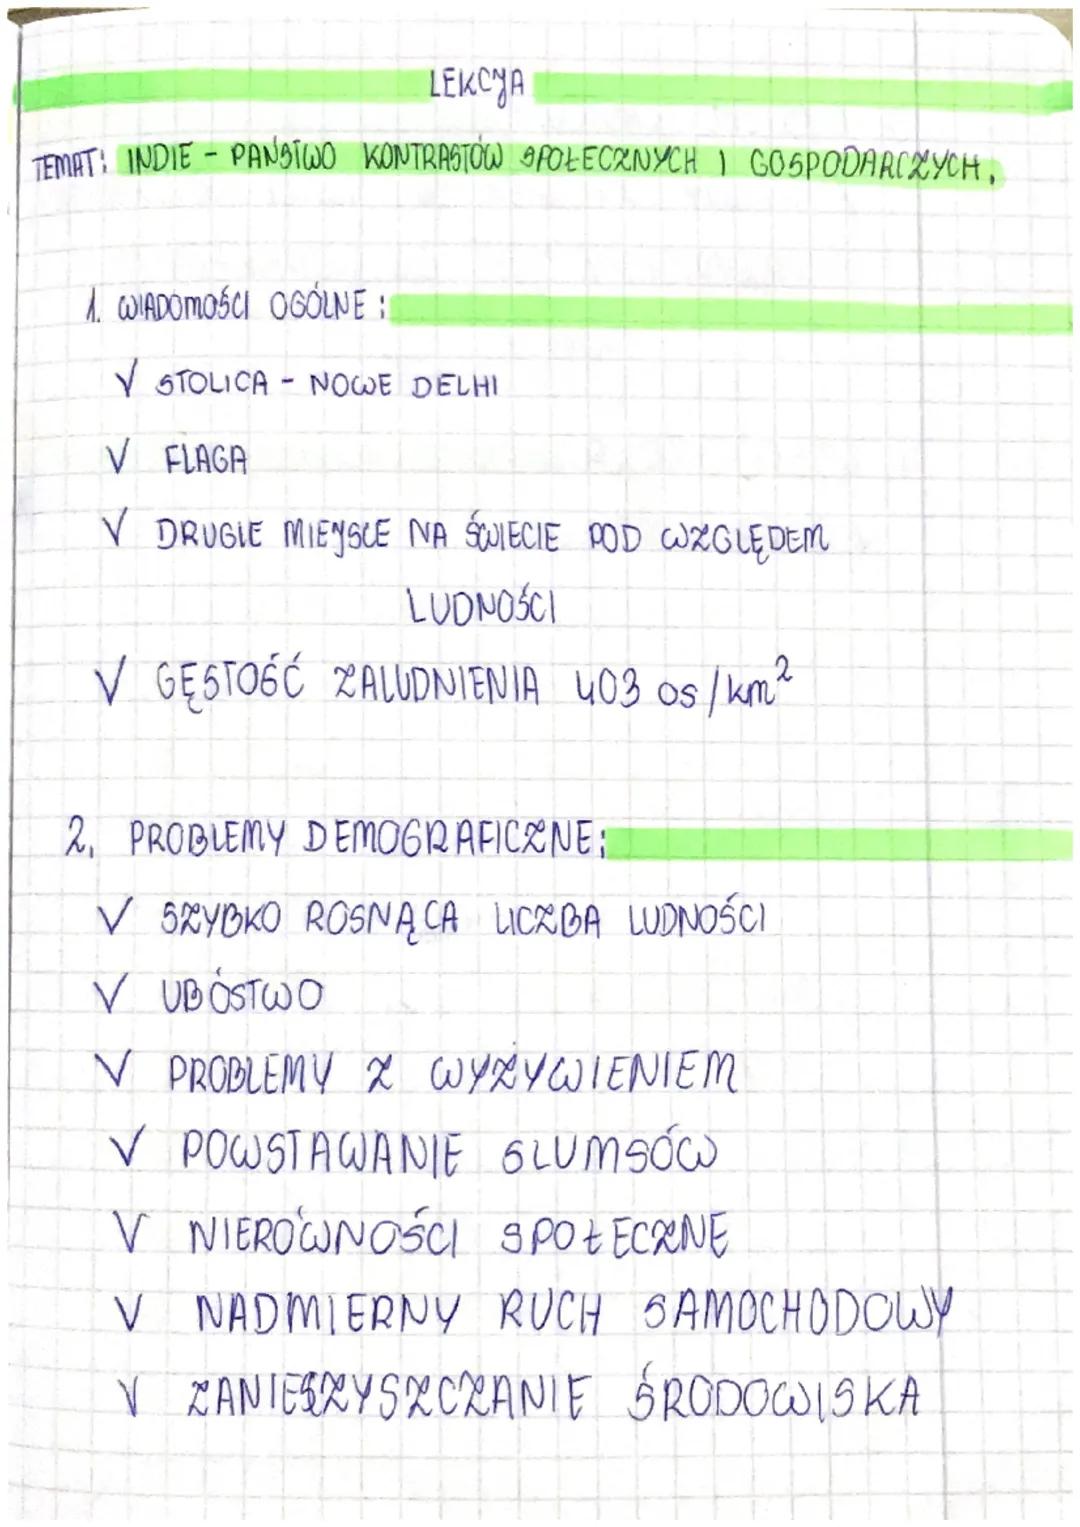 LEKCYA
TEMAT: INDIE - PAŃSTWO KONTRASTÓW SPOŁECZNYCH I GOSPODARCZYCH.
1. WIADOMOŚCI OGÓLNE:
√ STOLICA - NOWE DELHI
√ FLAGA
√ DRUGIE MIEJSCE NA ŚWIECIE POD WZGLĘDEM
LUDNOŚCI
√ GĘSTOŚĆ ZALUDNIENIA 403 os/km²
2. PROBLEMY DEMOGRAFICZNE:
√ SZYBKO ROSNĄCA LICZBA LUDNOŚCI
√ UBÓSTWO
√ PROBLEMY Z WYŻYWIENIEM
√ POWSTAWANIE SLUMSÓW
√ NIERÓWNOŚCI SPOŁECZNE
√ NADMIERNY RUCH SAMOCHODOWY
√ ZANIESZYSZCZANIE ŚRODOWISKA